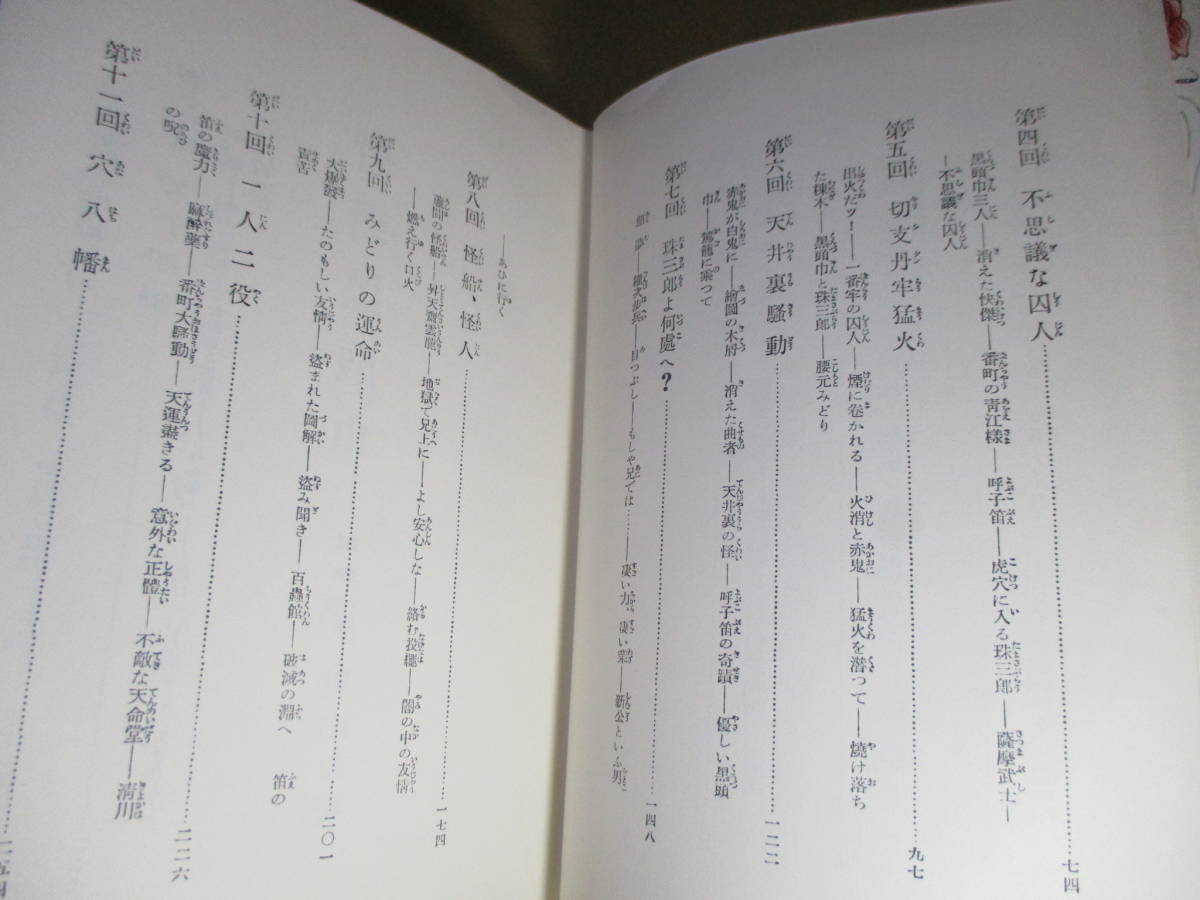 第四回 不思議な囚人……七四
黒頭巾三人——消えた快傑——番町の靑江樣——呼子笛——虎穴に入る珠三郎——薩摩武士—
—不思議な囚人
第五回 切支丹牢猛火……九七
出火だッ！——一番牢の囚人——煙に卷かれる——火消と赤鬼——猛火を潜つて——燒け落ち
た棟木——黒頭巾と珠三郎——腰元みどり
第六回 天井裏騷動……一二二
赤鬼が白鬼に——繪圖の木屑——消えた曲者——天井裏の怪——呼子笛の奇蹟——優しい黒頭
巾——駕籠に乘つて
第七回 珠三郎よ何處へ？……一四八
目つぶし——もしや兄では……——凄い力、凄い業——新公といふ男
——あひに行く
第八回 怪船、怪人……一七四
怪船——昇天齋雲龍——地獄で兄上に——よし安心しな——絡む投繩——闇の中の友情
——燃え行く口火
第九回 みどりの運命……二〇一
大爆破——たのもしい友情——盜まれた圖解——盜み聞き——百蟲館——破滅の淵へ 笛の
第十回 一人二役……二二六
笛の魔力——麻醉藥——番町大騷動——天運盡きる——意外な正體——不敵な天命堂——淸川
の呪
第十一回 穴八幡……二五四